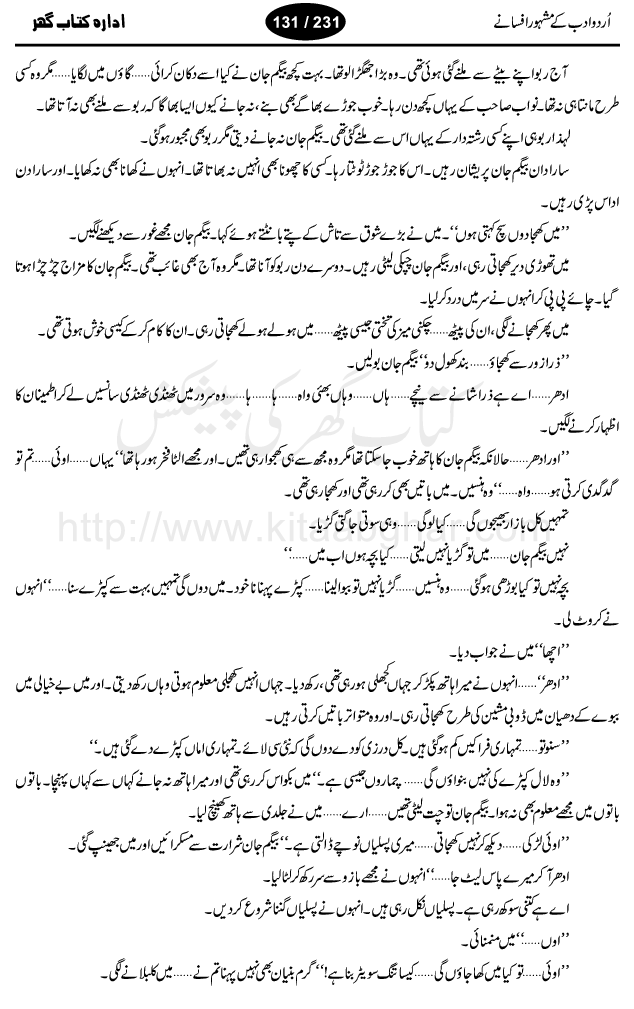 اُردو ادب کے مشہور افسانے
131 / 231
ادارہ کتاب گھر
آج ربو اپنے بیٹے سے ملنے گئی ہوئی تھی۔ وہ بڑا جھگڑالو تھا۔ بہت کچھ بیگم جان نے کیا اسے دکان کرائی......گاؤں میں لگایا......مگر وہ کسی
طرح مانتا ہی نہ تھا۔ نواب صاحب کے یہاں کچھ دن رہا۔ خوب جوڑے بھاگے بھی بنے، نہ جانے کیوں ایسا بھاگا کہ ربو سے ملنے بھی نہ آتا تھا۔
لہٰذا ربو ہی اپنے کسی رشتہ دار کے یہاں اس سے ملنے گئی تھی۔ بیگم جان نہ جانے دیتی مگر ربو بھی مجبور ہو گئی۔
سارا دن بیگم جان پریشان رہیں۔ اس کا جوڑ جوڑ ٹوٹتا رہا۔ کسی کا چھونا بھی انہیں نہ بھاتا تھا۔ انہوں نے کھانا بھی نہ کھایا۔ اور سارا دن
اداس پڑی رہیں۔
’’میں کھجا دوں سچ کہتی ہوں‘‘۔ میں نے بڑے شوق سے تاش کے پتے بانٹتے ہوئے کہا۔ بیگم جان مجھے غور سے دیکھنے لگیں۔
میں تھوڑی دیر کھجاتی رہی، اور بیگم جان چپکی لیٹی رہیں۔ دوسرے دن ربو کو آنا تھا۔ مگر وہ آج بھی غائب تھی۔ بیگم جان کا مزاج چڑچڑا ہوتا
گیا۔ چائے پی پی کر انہوں نے سر میں درد کر لیا۔
میں پھر کھجانے لگی، ان کی پیٹھ......چکنی میز کی تختی جیسی پیٹھ......میں ہولے ہولے کھجاتی رہی۔ ان کا کام کر کے کیسی خوش ہوتی تھی۔
’’ذرا زور سے کھجاؤ......بند کھول دو‘‘ بیگم جان بولیں۔
ادھر......اے ہے ذرا شانے سے نیچے......ہاں......وہاں بھئی واہ......ہا......ہا......وہ سرور میں ٹھنڈی ٹھنڈی سانسیں لے کر اطمینان کا
اظہار کرنے لگیں۔
’’اور ادھر......حالانکہ بیگم جان کا ہاتھ خوب جا سکتا تھا مگر وہ مجھ سے ہی کھجوا رہی تھیں۔ اور مجھے الٹا فخر ہو رہا تھا‘‘ یہاں......اوئی......تم تو
گدگدی کرتی ہو......واہ......‘‘ وہ ہنسیں۔ میں باتیں بھی کر رہی تھی اور کھجا رہی تھی۔
تمہیں کل بازار بھیجوں گی......کیا لو گی......وہی سوتی جاگتی گڑیا۔
نہیں بیگم جان......میں تو گڑیا نہیں لیتی......کیا بچہ ہوں اب میں......‘‘
بچہ نہیں تو کیا بوڑھی ہو گئی......وہ ہنسیں......گڑیا نہیں تو ببوا لینا......کپڑے پہنانا خود۔ میں دوں گی تمہیں بہت سے کپڑے سنا......‘‘ انہوں
نے کروٹ لی۔
’’اچھا‘‘ میں نے جواب دیا۔
’’ادھر‘‘......انہوں نے میرا ہاتھ پکڑ کر جہاں کھجلی ہو رہی تھی، رکھ دیا۔ جہاں انہیں کھجلی معلوم ہوتی وہاں رکھ دیتی۔ اور میں بے خیالی میں
ببوے کے دھیان میں ڈوبی مشین کی طرح کھجاتی رہی۔ اور وہ متواتر باتیں کرتی رہیں۔
’’سنو تو......تمہاری فراکیں کم ہو گئی ہیں۔ کل درزی کو دے دوں گی کہ نئی سی لائے۔ تمہاری اماں کپڑے دے گئی ہیں۔‘‘
’’وہ لال کپڑے کی نہیں بنواؤں گی......چماروں جیسی ہے۔‘‘ میں بکواس کر رہی تھی اور میرا ہاتھ نہ جانے کہاں سے کہاں پہنچا۔ باتوں
باتوں میں مجھے معلوم بھی نہ ہوا۔ بیگم جان تو چت لیٹی تھیں......ارے......میں نے جلدی سے ہاتھ کھینچ لیا۔
’’اوئی لڑکی......دیکھ کر نہیں کھجاتی......میری پسلیاں نوچے ڈالتی ہے۔‘‘ بیگم جان شرارت سے مسکرائیں اور میں جھینپ گئی۔
ادھر آ کر میرے پاس لیٹ جا......‘‘ انہوں نے مجھے بازو سے سر رکھ کر لٹا لیا۔
اے ہے کتنی سوکھ رہی ہے۔ پسلیاں نکل رہی ہیں۔ انہوں نے پسلیاں گننا شروع کر دیں۔
’’اوں......‘‘ میں منمنائی۔
’’اوئی......تو کیا میں کھا جاؤں گی......کیسا تنگ سویٹر بنا ہے!‘‘ گرم بنیان بھی نہیں پہنا تم نے......میں کلبلانے لگی۔
کتاب گھر کی پیشکش
http://www.kitaabghar.com